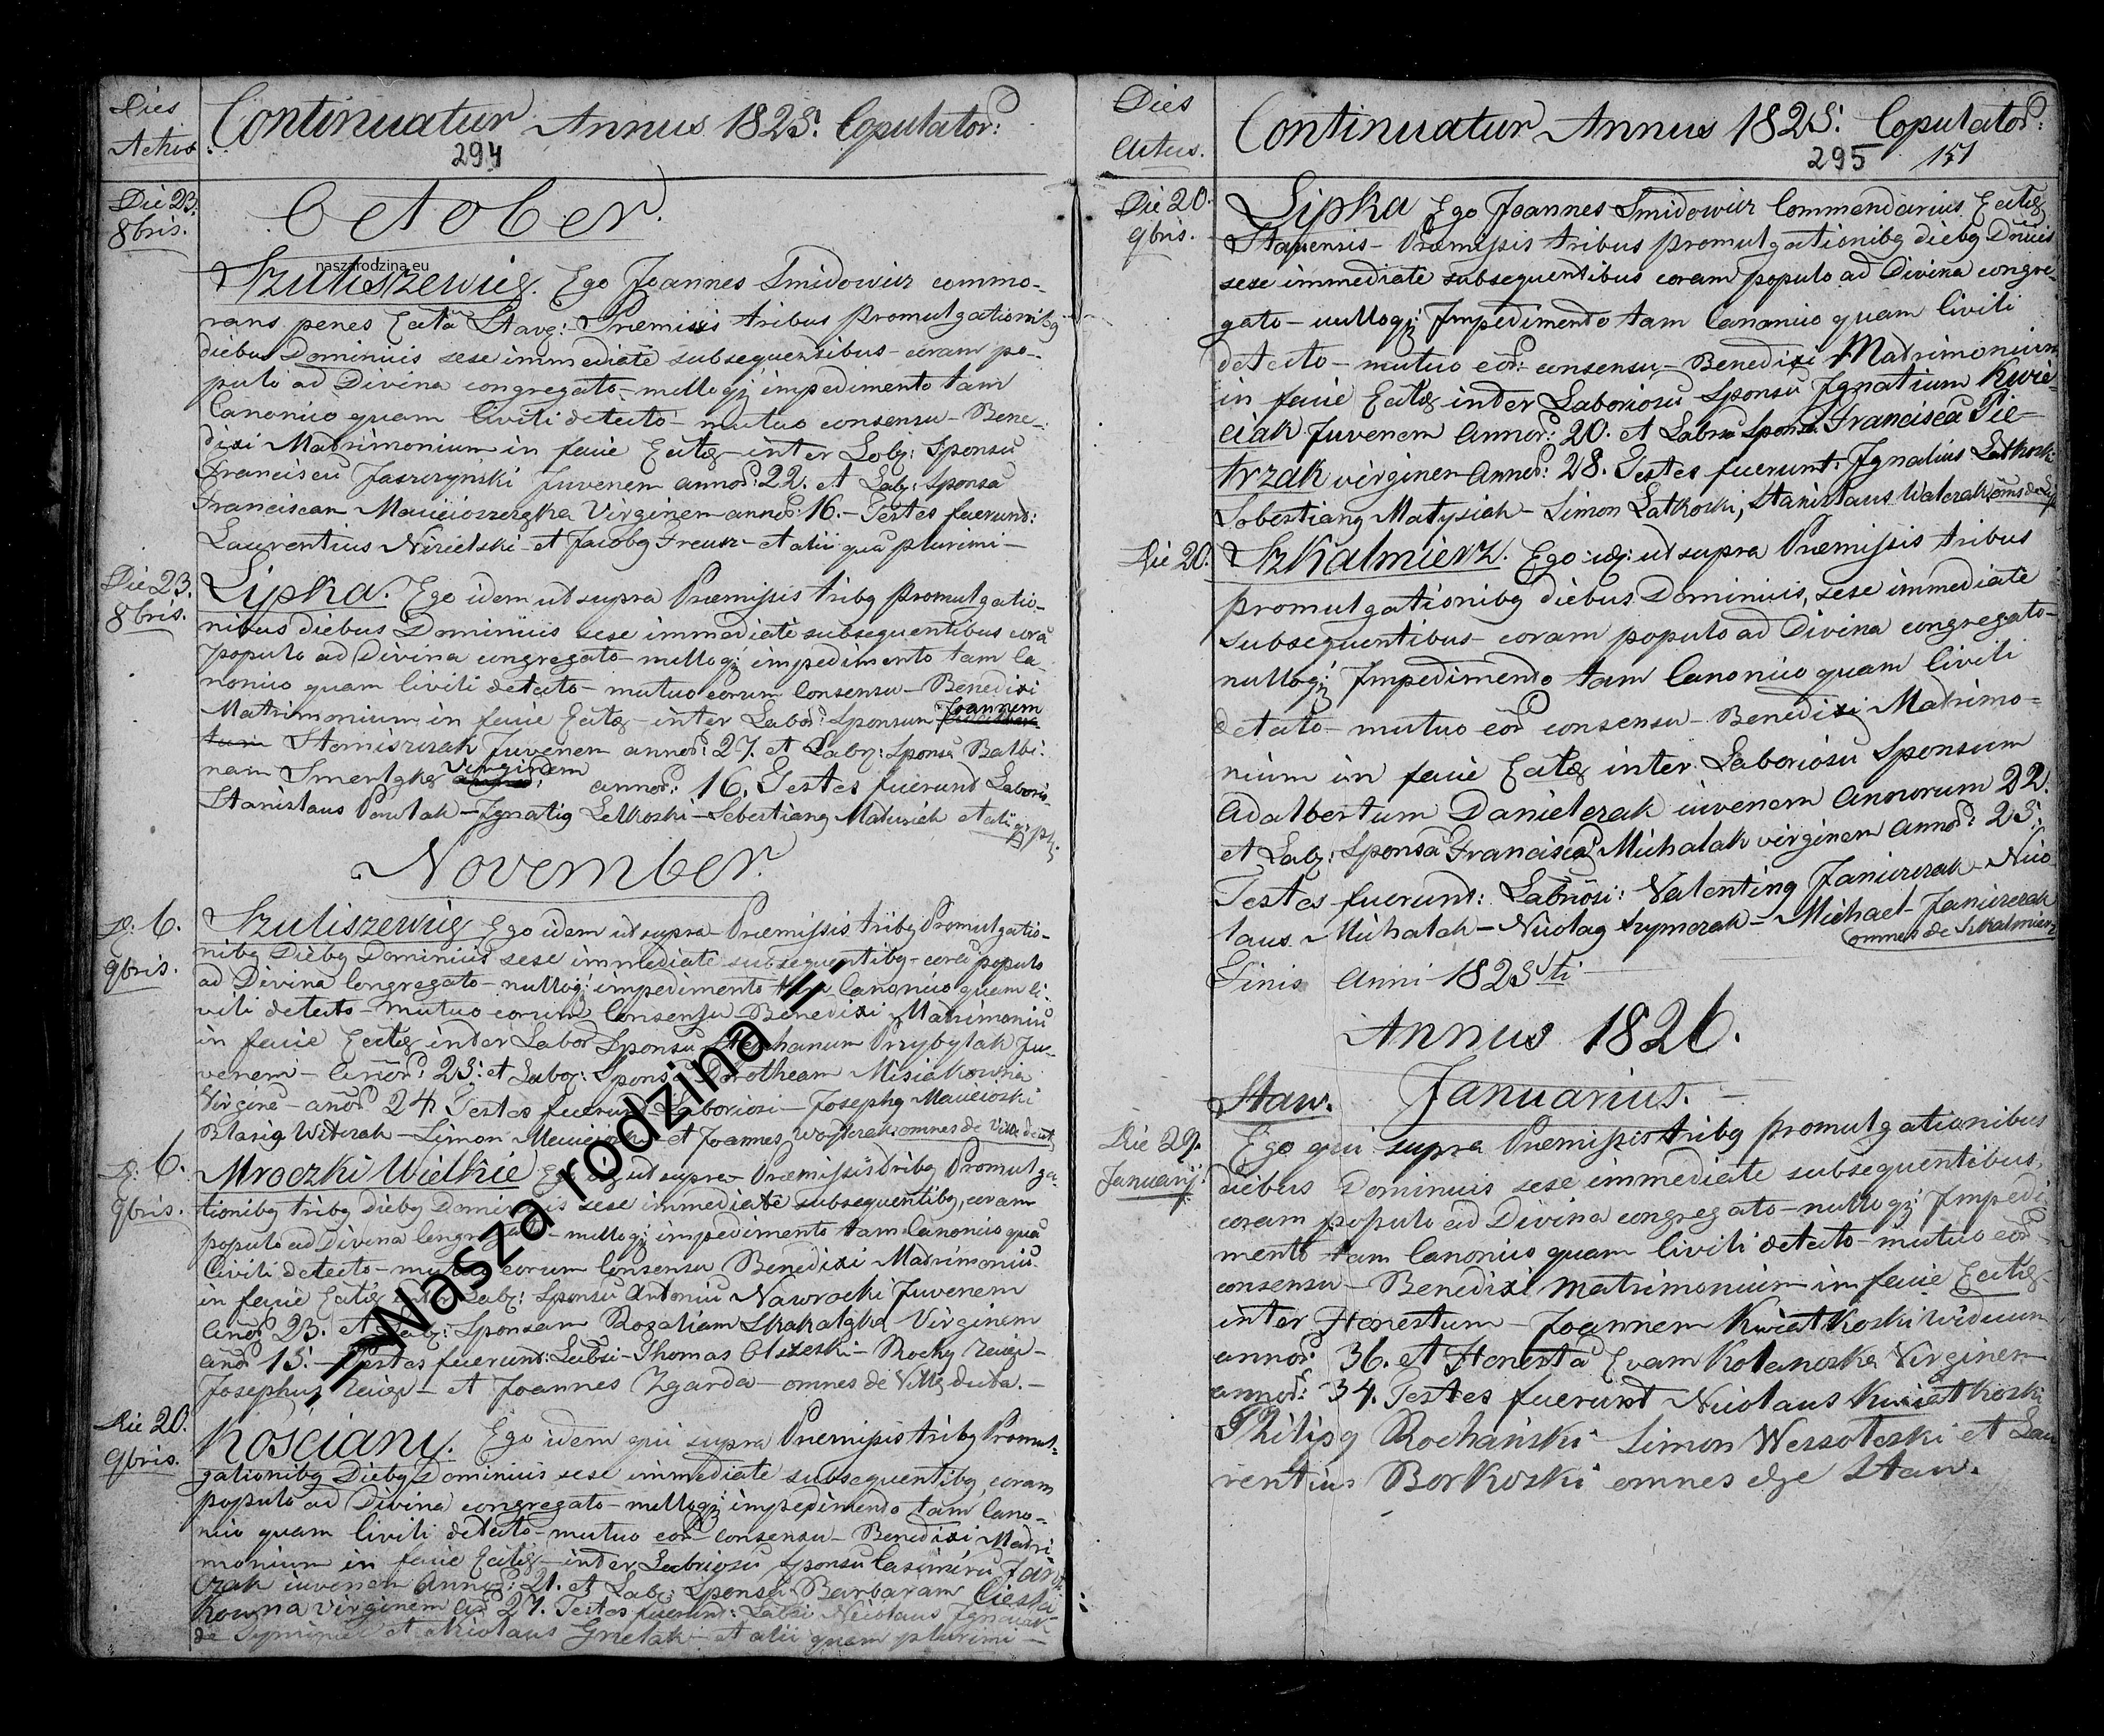 Dies
Actus
Continuatur Annus 1825. Copulator:
294
Die 23.
8bris.
October.
naszarodzina.eu
Szuliszewice. Ego Joannes Smidowicz commo-
rans penes Stav: - Premissis tribus Promulgationibq
diebus Dominicis sese immediate subsequentibus - coram po-
pulo ad Divina congregato - nulloqz impedimento tam
Canonico quam Civili detecto - mutuo consensu - Bene-
dixi Matrimonium in facie inter Sponsu
Franciscu Jaszczynski Juvenem annor: 22. et Sponsa
Franciscam Virginem annor: 16. - Testes fuerunt:
Laurentius Nizielski - et Jacobq - et alii qua plurimi -
Die 23.
8bris.
Lipka. Ego idem ut supra Præmissis tribq promulgatio-
nibus diebus Dominicis sese immediate subsequentibus cora
populo ad Divina congregato - nulloqz impedimento tam Ca-
nonico quam Civili detecto - mutuo eorum Consensu - Benedixi
Matrimonium in facie - inter Labor: Sponsum Joannem
Stamiszczak Juvenem annor: 27. et Sponsa Balbi-
nam Virginem annor: 16. Testes fuerunt Laborio-
Stanislaus Pawlak - Ignatiq Letkoski - Sebestianq et alii
November.
D: 6.
9bris.
Szuliszewice Ego idem ut supra - Præmissis tribq Promulgatio-
nibq Diebq Dominicis sese immediate subsequentibq - cora populo
ad Divina Congregato - nulloqz impedimento tam Canonico quam Ci-
vili detecto - mutuo eorum Consensu - Benedixi Matrimoniu
in facie inter Labor Sponsu Stephanum Przybylak Ju-
venem - Annor: 25. et Sponsa Dorotheam Misiakowna
Virgine - anor 24 Testes fuerunt Laboriosi - Josephq Macieioski
Blasiq Witczak - Simon et Joannes omnes de Villa
D: 6.
9bris.
Mroczki Wielkie Ego ut supra - Præmissis tribq Promulga-
tionibq tribq diebq Dominicis sese immediate subsequentibq, coram
populo ad Divina Congregato - nulloqz impedimento tam Canonico qua
Civili detecto - mutuo eorum Consensu Benedixi Matrimoniu
in facie inter Sponsu Antoniu Nawrocki Juvenem
Anor 23. et Sponsam Rozaliam Virginem
anor 15. - Testes fuerunt: Thomas Olszeski - Rochq
Josephus - et Joannes Zgarda - omnes de Villa dicta. -
Die 20.
9bris.
Kosciany. Ego idem qui supra Præmissis tribq Promul-
gationibq Diebq Dominicis sese immediate subsequentibq, coram
populo ad Divina congregato - nulloqz impedimento tam Cano-
nico quam Civili detecto - mutuo eor consensu - Benedixi Matri-
monium in facie inter Sponsu Casimiru
czak iuvenem Annor: 21. et Sponsa Barbaram Cieslu-
kowna virginem 27. Testes fuerunt: Nicolaus
et Nicolaus - et alii quam plurimi -
"Wasza rodzina"
Dies
Actus.
Continuatur Annus 1825. Copulator:
295 151
Die 20.
9bris.
Lipka Ego Joannes Smidowicz Commendarius
Stavensis - Præmissis tribus promulgationibq diebq
sese immediate subsequentibus coram populo ad Divina congre-
gato - nulloqz Impedimento tam Canonico quam Civili
detecto - mutuo eor: consensu - Benedixi Matrimonium
in facie inter Laboriosu Sponsu Ignatium Kwie-
ciak Juvenem Annor: 20. et Sponsa Francisca Pie-
trzak virginem Annor: 28. Testes fuerunt: Ignatius Latkoski
Sobestianq Matysiak - Simon Latkoski, Stanislaus
Die 20.
Szkalmierz. Ego ut supra Præmissis tribus
promulgationibq diebus Dominicis, sese immediate
subsequentibus - coram populo ad Divina congregato -
nulloqz Impedimento tam Canonico quam Civili
detecto - mutuo eor consensu - Benedixi Matrimo-
nium in facie inter Laboriosu Sponsum
Adalbertum Danielczak iuvenem Annorum 22.
et Sponsa Francisca Michalak virginem Annor: 25.
Testes fuerunt: Valentinq Janiszczak - Nico
laus Michalak - Nicolaq Szymczak - Michael
omnes de Szkalmierz
Finis Anni 1825ti
Annus 1826.
Staw. Januarius.
Die 29.
Januarij.
Ego qui supra Præmissis tribq promulgationibus
diebus Dominicis sese immediate subsequentibus,
coram populo ad Divina congregato - nulloqz Impedi
mento tam Canonico quam Civili detecto - mutuo eor -
consensu - Benedixi Matrimonium in facie
inter Honestum - Joannem Kwiatkoski viduum
annor: 36. et Honesta Evam Virginem
annor: 34. Testes fuerunt Nicolaus Kwiatkoski
Philipq Rochański - Simon Wessoleski et Lau
rentius Borkoski omnes de Staw.